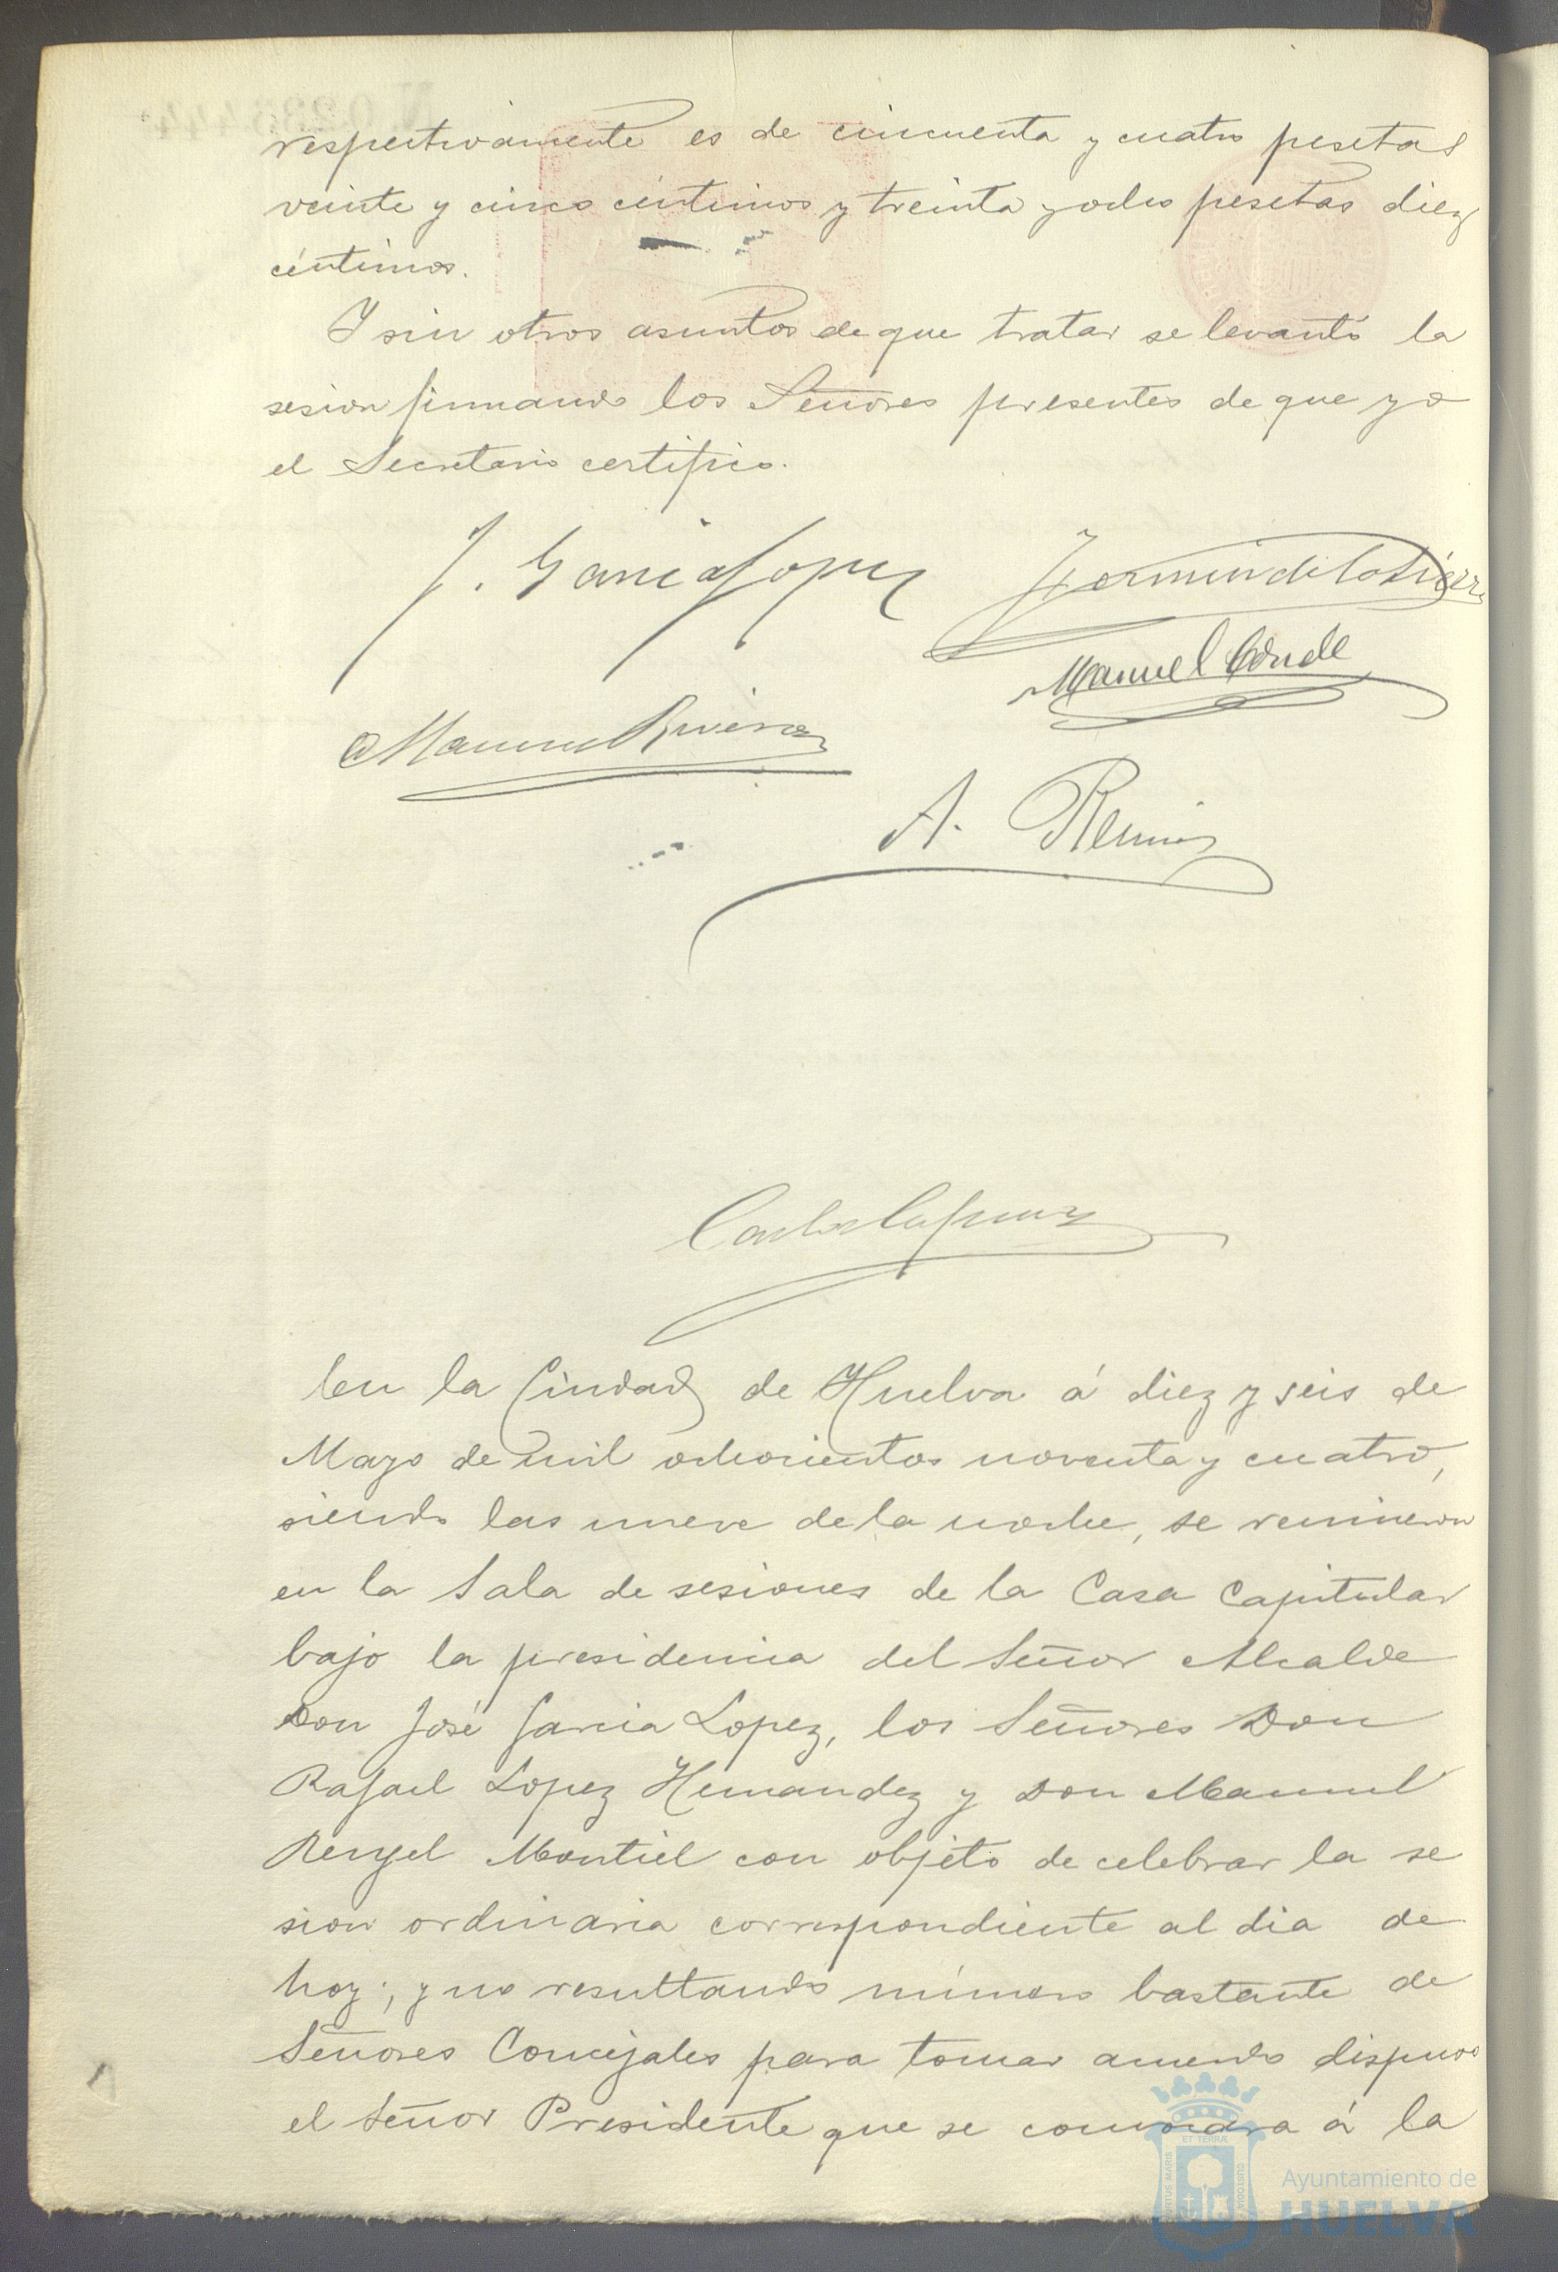 respectivamente es de cincuenta y cuatro pesetas
veinte y cinco céntimos y treinta y ocho pesetas diez
céntimos.
Y sin otros asuntos de que tratar se levantó la
sesion firmando los Señores presentes de que yo
el Secretario certifico.
J. Garcia Lopez
Fermin de la Sierra
Manuel Conde
Manuel Rivera
A.
En la Ciudad de Huelva á diez y seis de
Mayo de mil ochocientos noventa y cuatro,
siendo las nueve de la noche, se reunieron
en la Sala de sesiones de la Casa Capitular
bajo la presidencia del Señor Alcalde
Don José Garcia Lopez, los Señores Don
Rafael Lopez Hernandez y Don Manuel
Rengel Montiel con objeto de celebrar la se
sion ordinaria correspondiente al dia de
hoy; y no resultando número bastante de
Señores Concejales para tomar acuerdo dispuso
el Señor Presidente que se convocara á la
Ayuntamiento de
HUELVA